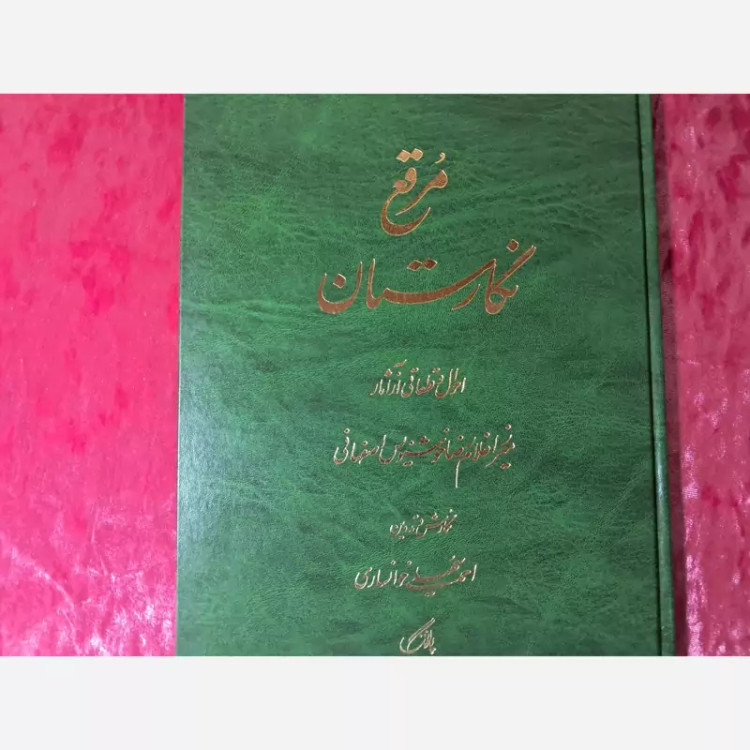 مُرقع
نگارستان
احوال و قطعاتی از آثار
میرزا غلامرضا خوشنویس اصفهانی
نگارش و تدوین
احمد سهیلی خوانساری
پاژنگ